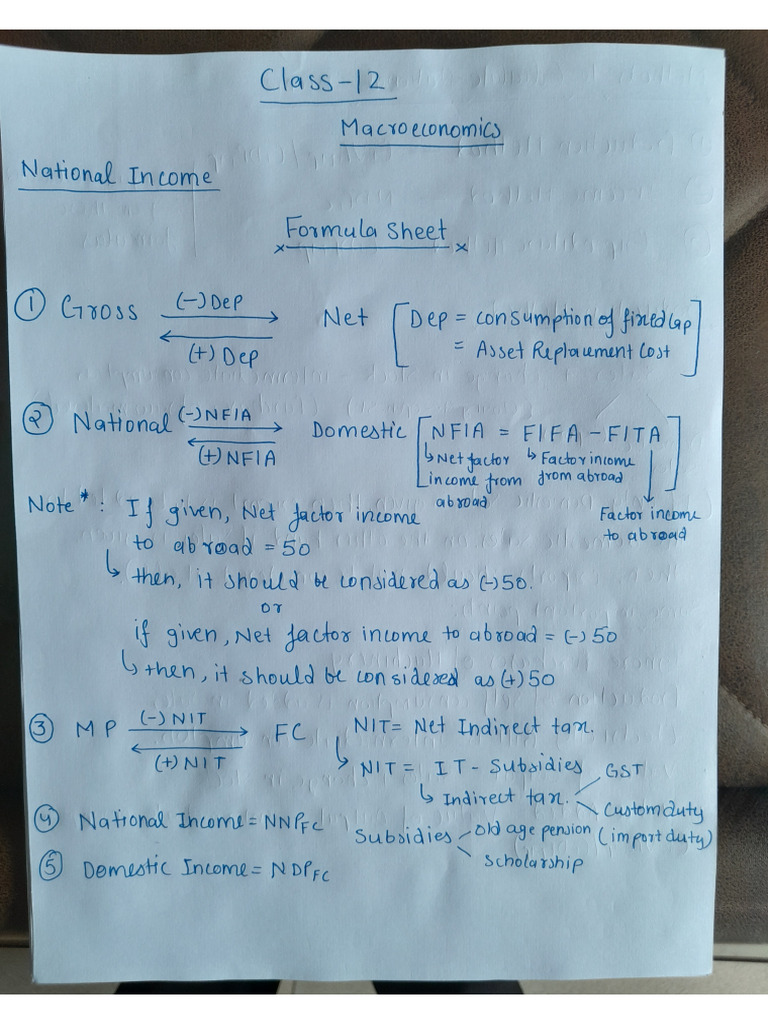 Class-12
Macroeconomics
National Income
Formula Sheet
① Gross (-) Dep Net [Dep = consumption of fixed Cap]
(+) Dep = Asset Replacement Cost
② National (-) NFIA Domestic [NFIA = FIFA - FITA]
(+) NFIA ↳ Net factor ↳ Factor income
income from from abroad
abroad Factor income
to abroad
Note * : If given, Net factor income
to abroad = 50
↳ then, it should be considered as (-) 50.
or
if given, Net factor income to abroad = (-) 50
↳ then, it should be considered as (+) 50
③ MP (-) NIT FC NIT = Net Indirect tax.
(+) NIT ↳ NIT = IT - Subsidies
↳ Indirect tax. GST
Custom duty
(import duty)
④ National Income = NNP FC
Subsidies Old age pension
Scholarship
⑤ Domestic Income = NDP FC